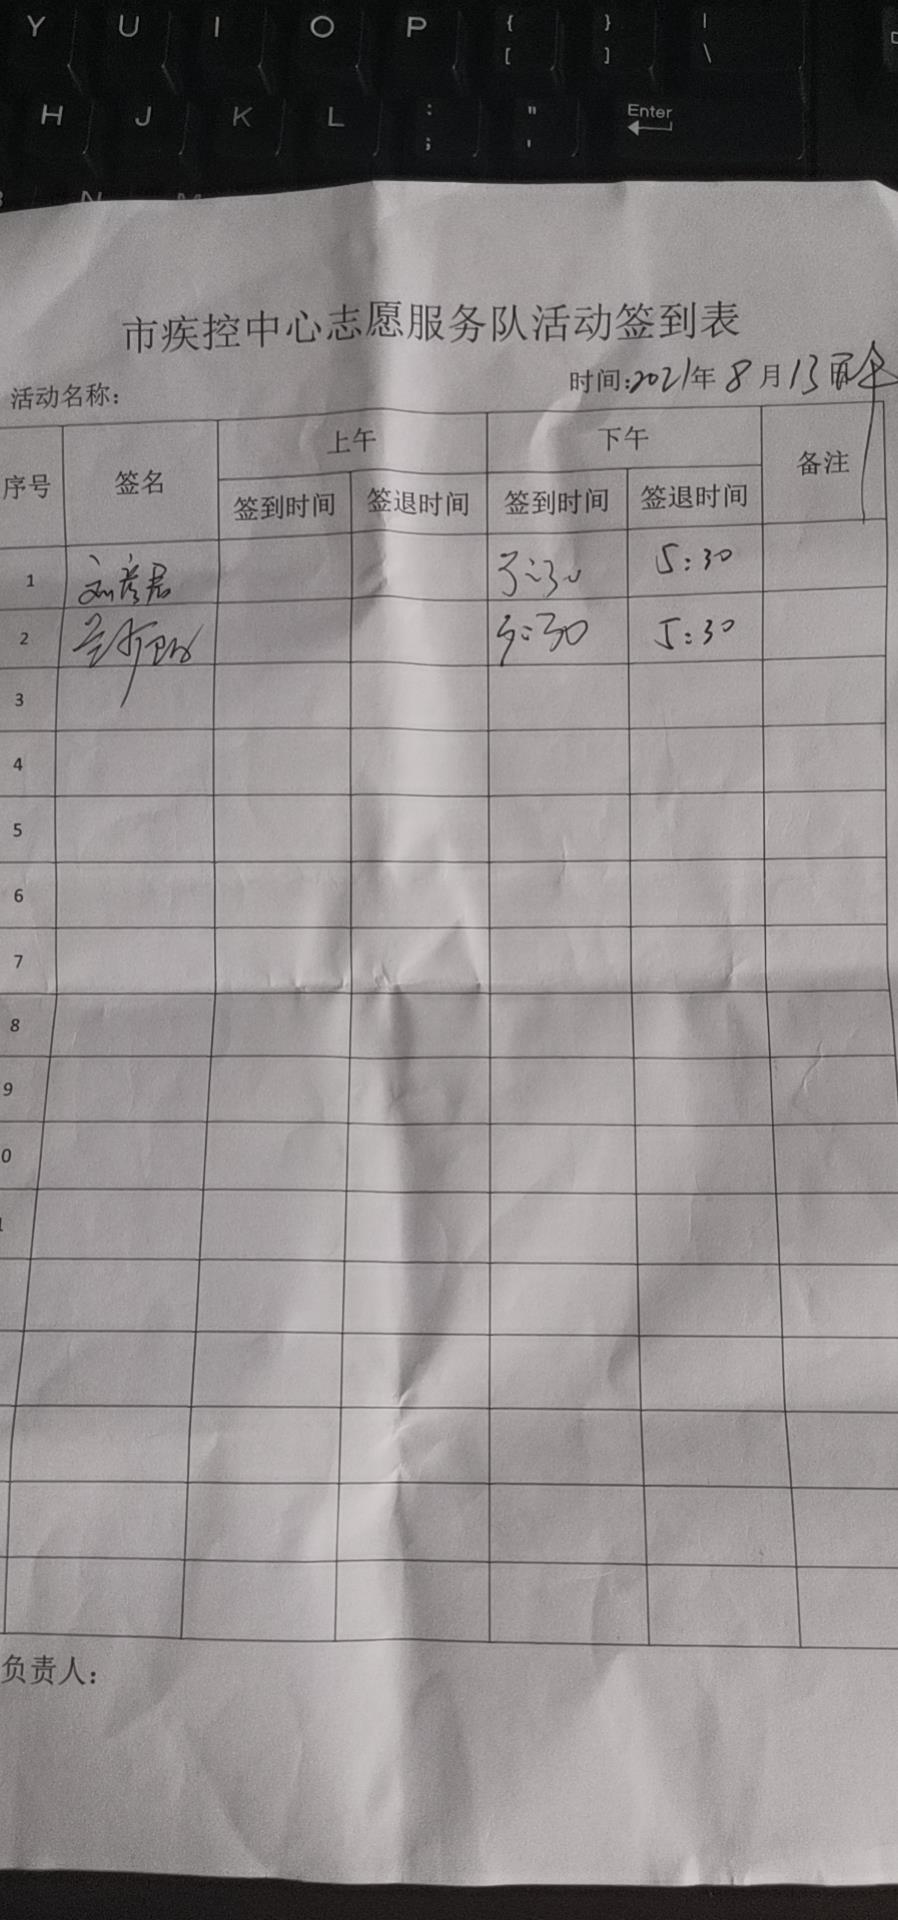 Y U I O P { [ } ] | \
H J K L : ; " ' Enter
N M
市疾控中心志愿服务队活动签到表
活动名称: 时间:2021年 8 月 13
序号 签名 上午 下午 备注
签到时间 签退时间 签到时间 签退时间
1 5:30
2 5:30
3
4
5
6
7
8
9
0
负责人: